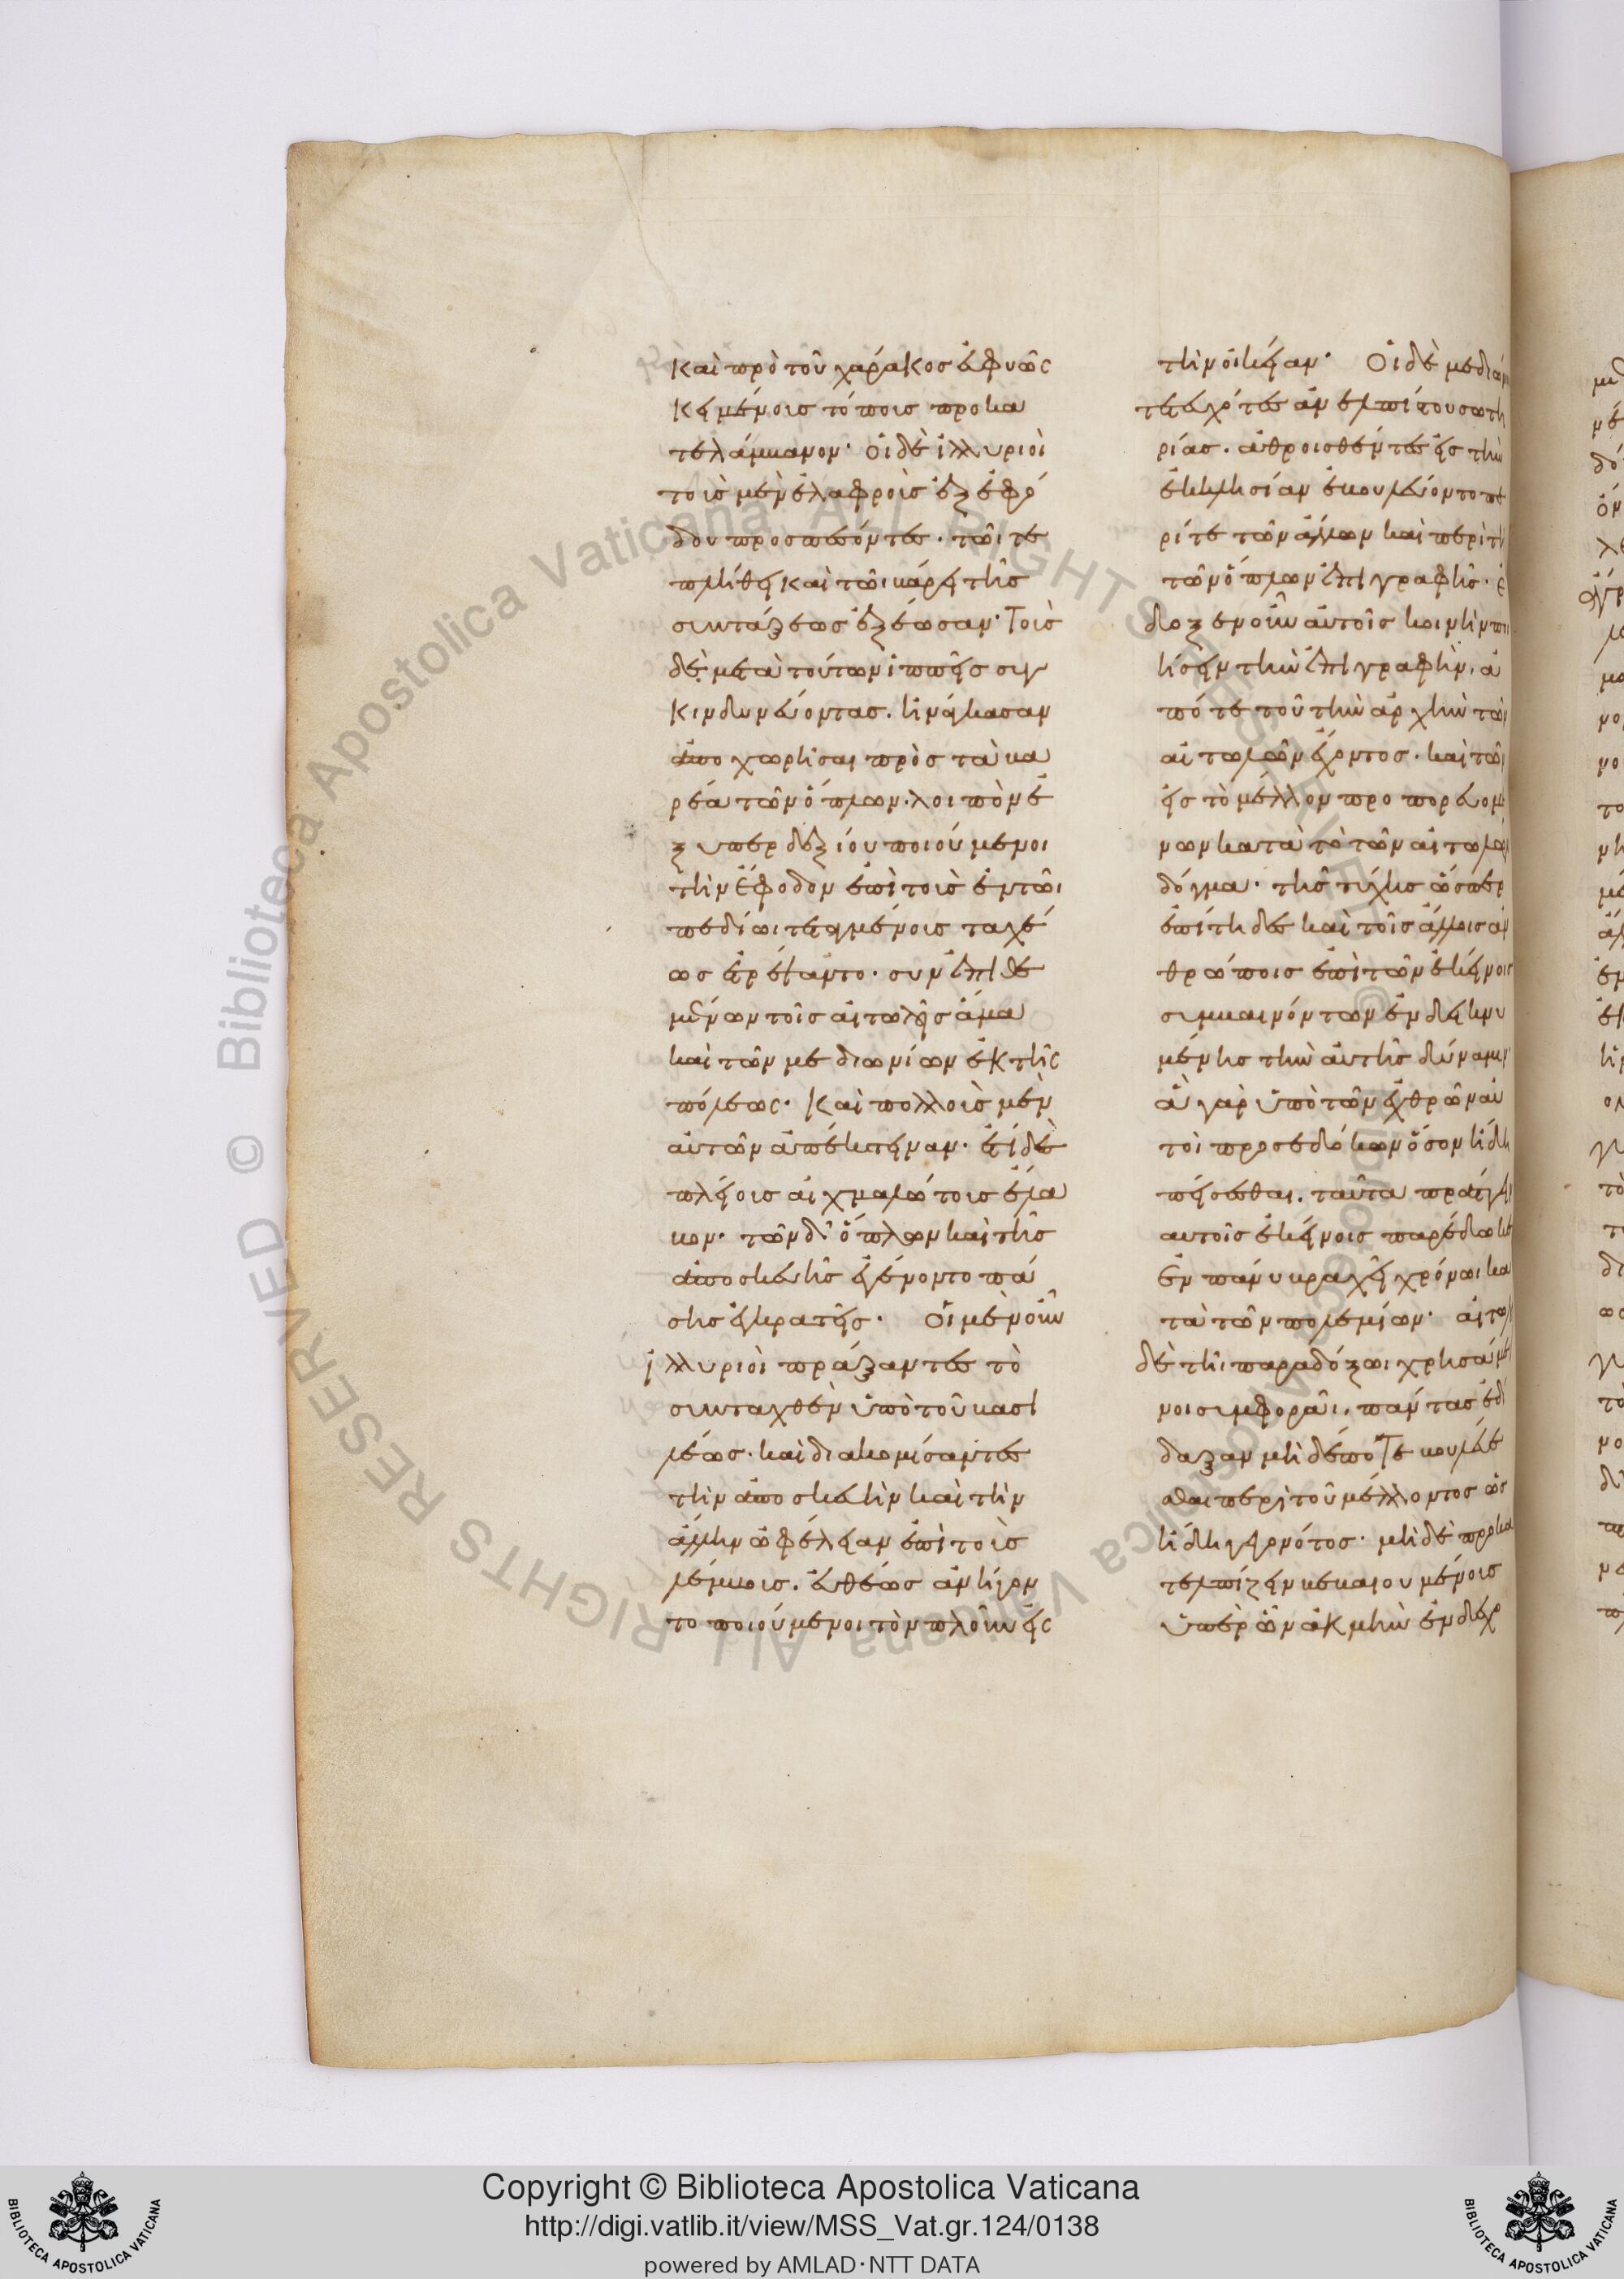 καὶ πρὸ τοῦ χάρακος εὐφυῶς
κειμένοις τόποις προκα
τελάμβανον· οἱ δὲ ἰλλυριοὶ
τοῖς μὲν ἐλαφροῖς ἐξ ἐφό
δου προσπεσόντες. τῶι τε
πλήθει καὶ τῶι βάρει τῆς
συντάξεως ἐξέωσαν· τοὺς
δὲ μετὰ τούτων ἱππεῖς συγ
κινδυνεύοντας. ἠνάγκασαν
ἀποχωρῆσαι πρὸς τὰ βα
ρέα τῶν ὅπλων. λοιπὸν ἐ
ξ ὑπερδεξίου ποιούμενοι
τὴν ἔφοδον ἐπὶ τοὺς ἐν τῶι
πεδίωι τεταγμένους ταχέ
ως ἐτρέψαντο. συνεπιθε
μένων τοῖς αἰτωλοῖς ἅμα
καὶ τῶν μεδιωνίων ἐκ τῆς
πόλεως. καὶ πολλοὺς μὲν
αὐτῶν ἀπέκτειναν. ἔτι δὲ
πλείους αἰχμαλώτους ἔλα
βον. τῶν δ' ὅπλων καὶ τῆς
ἀποσκευῆς ἐγένοντο πά
σης ἐγκρατεῖς. Οἱ μὲν οὖν
ἰλλυριοὶ πράξαντες τὸ
συνταχθὲν ὑπὸ τοῦ βασι
λέως. καὶ διακομίσαντες
τὴν ἀποσκευὴν καὶ τὴν
ἄλλην ὠφέλειαν ἐπὶ τοὺς
λέμβους. εὐθέως ἀνήγον
το ποιούμενοι τὸν πλοῦν εἰς
τὴν οἰκείαν. Οἱ δὲ μεδιών
τετευχότες ἀνελπίστου σωτη
ρίας. ἀθροισθέντες εἰς τὴν
ἐκκλησίαν ἐβουλεύοντο πε
ρί τε τῶν ἄλλων καὶ περὶ τῆ
τῶν ὅπλων ἐπιγραφῆς. ἔ
δοξεν οὖν αὐτοῖς κοινὴν ποι
ήσειν τὴν ἐπιγραφὴν. ἀ
πό τε τοῦ τὴν ἀρχὴν τῶν
αἰτωλῶν ἔχοντος. καὶ τῶν
εἰς τὸ μέλλον προπορευομέ
νων κατὰ τὸ τῶν αἰτωλῶν
δόγμα. τῆς τύχης ὥσπερ
ἐπίτηδες καὶ τοῖς ἄλλοις ἀν
θρώποις ἐπὶ τῶν ἐκείνοις
συμβαινόντων ἐνδεικνυ
μένης τὴν αὐτῆς δύναμιν
ἃ γὰρ ὑπὸ τῶν ἐχθρῶν αὐ
τοὶ προσεδόκων ὅσον ἤδη
πείσεσθαι. ταῦτα πράττειν
αυτοῖς ἐκείνοις παρέδωκε
ἐν πάνυ βραχεῖ χρόνωι κα
τὰ τῶν πολεμίων. αἰτωλοὶ
δὲ τῆι παραδόξωι χρησάμε
νοι συμφορᾶι. πάντας ἐδί
δαξαν μηδέποτε βουλεύε
σθαι περὶ τοῦ μέλλοντος ὡς
ἤδη γεγονότος. μηδὲ προκα
τελπίζειν βεβαιουμένους
ὑπὲρ ὧν ἀκμὴν ἐνδεχό
Copyright © Biblioteca Apostolica Vaticana
http://digi.vatlib.it/view/MSS_Vat.gr.124/0138
powered by AMLAD·NTT DATA